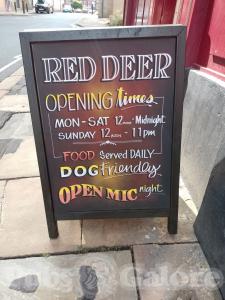 RED DEER
OPENING times
MON - SAT 12noon - Midnight
SUNDAY 12noon - 11pm
FOOD Served DAILY
DOG friendly
OPEN MIC night
Pubs Galore